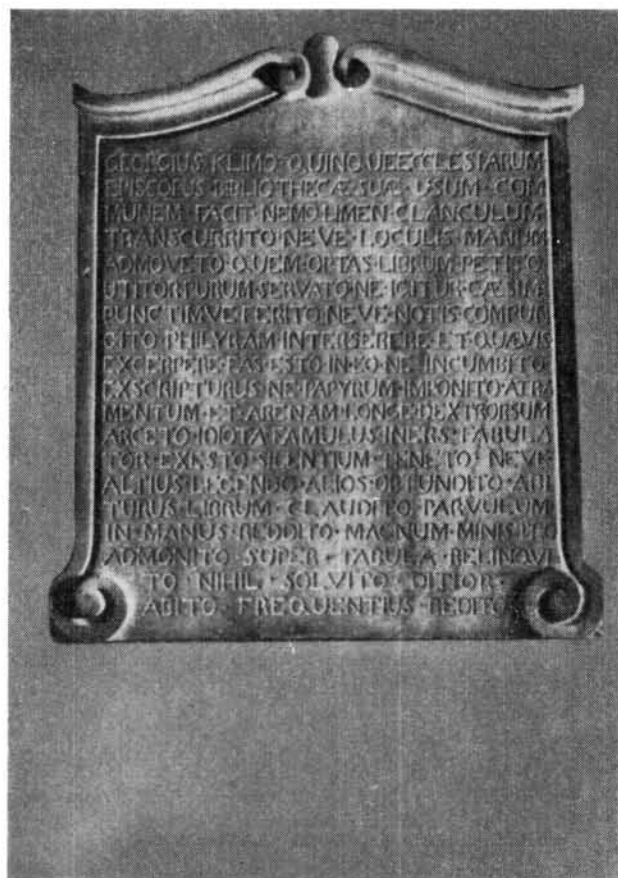 GEORGIUS·KLIMO·QUINQUEECCLESIARUM
EPISCOPUS·BIBLIOTHECÆ·SUÆ·USUM·COM
MUNEM·FACIT·NEMO·LIMEN·CLANCULUM
TRANSCURRITO·NEVE·LOCULIS·MANUM
ADMOVETO·QUEM·OPTAS·LIBRUM·PETITO
UTITOR·PURUM·SERVATO·NE·IGITUR·CÆSIM
PUNCTIMVE·FERITO·NEVE·NOTIS·COMPUN
GITO·PHILYRAM·INTERSERERE·ET·QUÆVIS
EXCERPERE·FAS·ESTO·IN·EO·NE·INCUMBITO
EXSCRIPTURUS·NE·PAPYRUM·IMPONITO·ATRA
MENTUM·ET·ARENAM·LONGE·DEXTRORSUM
ARCETO·IDIOTA·FAMULUS·INERS·FABULA
TOR·EXESTO·SILENTIUM·TENETO·NEVE
ALTIUS·LEGENDO·ALIOS·OBTUNDITO·ABI
TURUS·LIBRUM·CLAUDITO·PARVULUM
IN·MANUS·REDDITO·MAGNUM·MINISTRO
ADMONITO·SUPER·TABULA·RELINQUI
TO·NIHIL·SOLVITO·DITIOR·
ABITO·FREQUENTIUS·REDITO